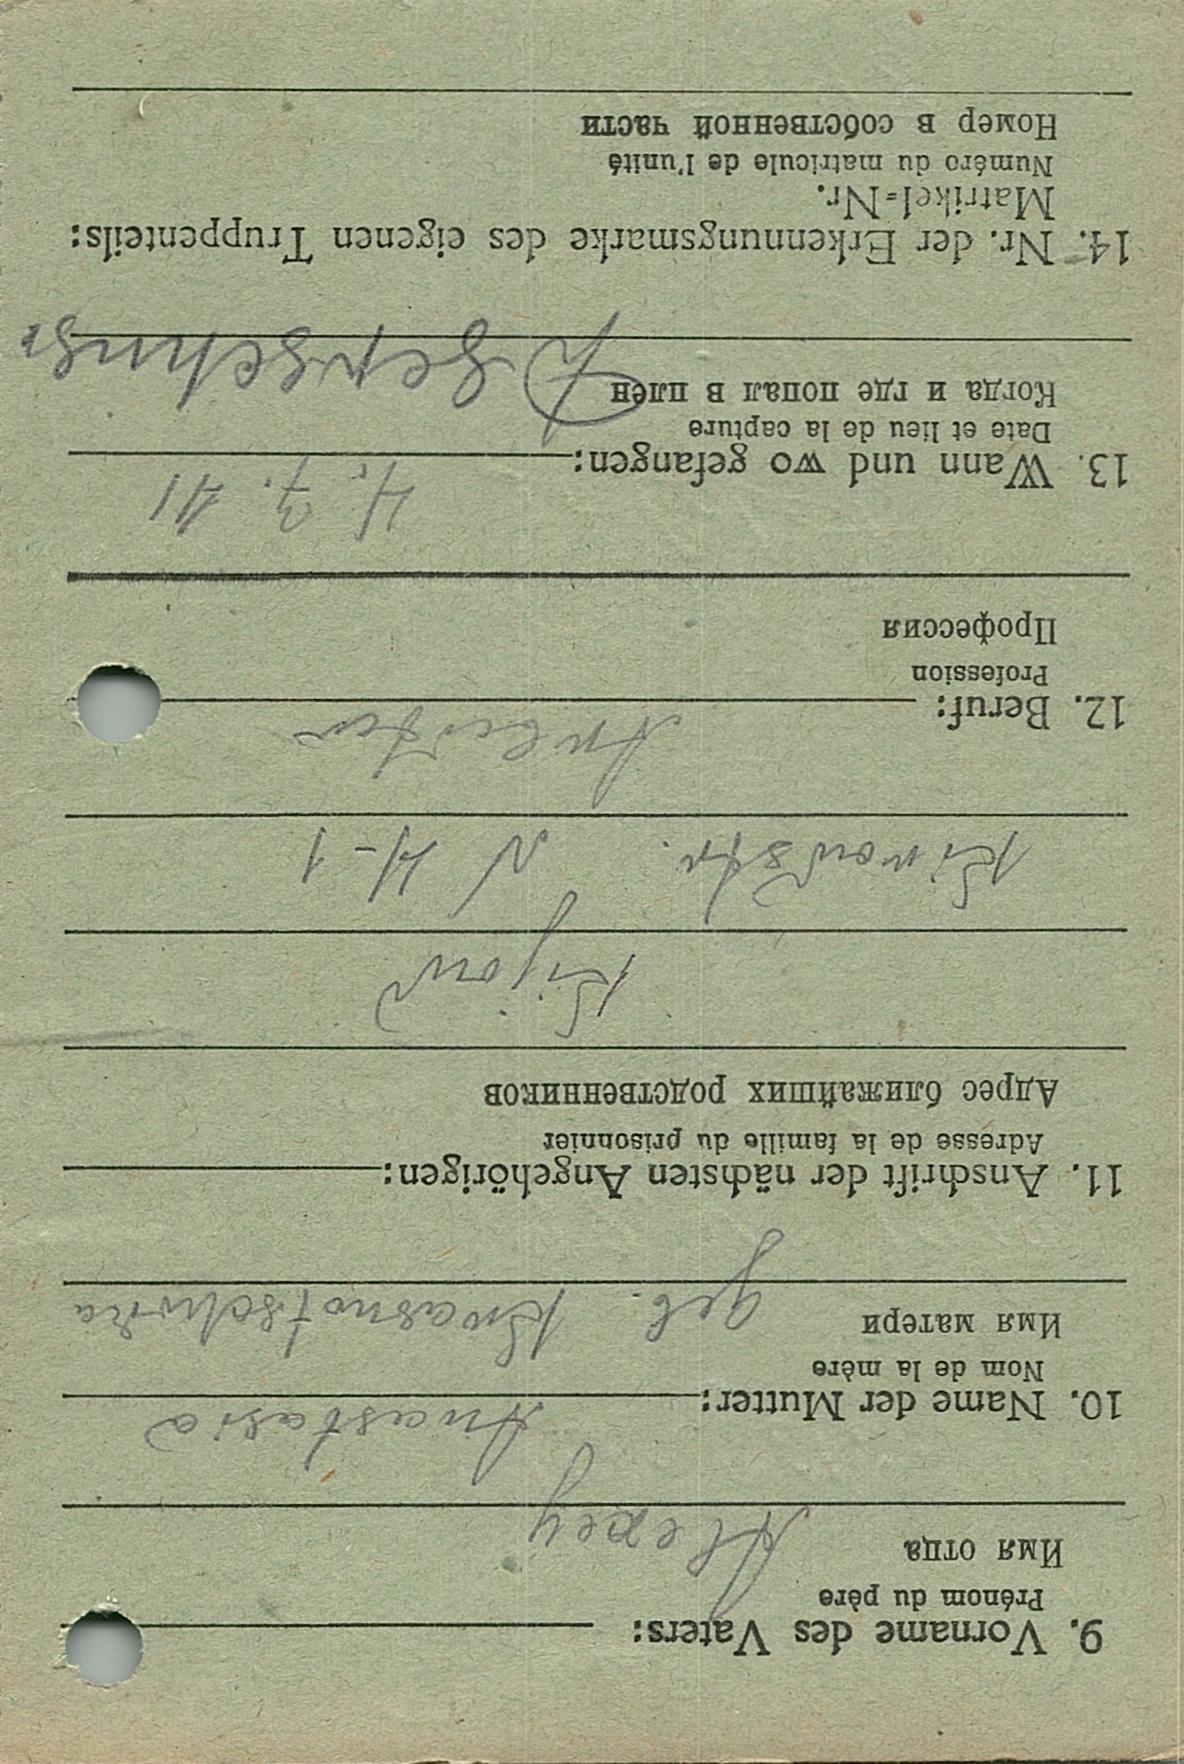 9. Vorname des Vaters:
Prénom du père
Имя отца
Alexey
10. Name der Mutter:
Anastasia
Nom de la mère
Имя матери
geb. Kwasnotschwka
11. Anschrift der nächsten Angehörigen:
Adresse de la famille du prisonnier
Адрес ближайших родственников
Kijow
Kirowstr. N 4-1
12. Beruf: Arbeiter
Profession
Профессия
13. Wann und wo gefangen: 4. 7. 41
Date et lieu de la capture
Когда и где попал в плен
14. Nr. der Erkennungsmarke des eigenen Truppenteils:
Matrikel-Nr.
Numéro du matricule de l'unité
Номер в собственной части